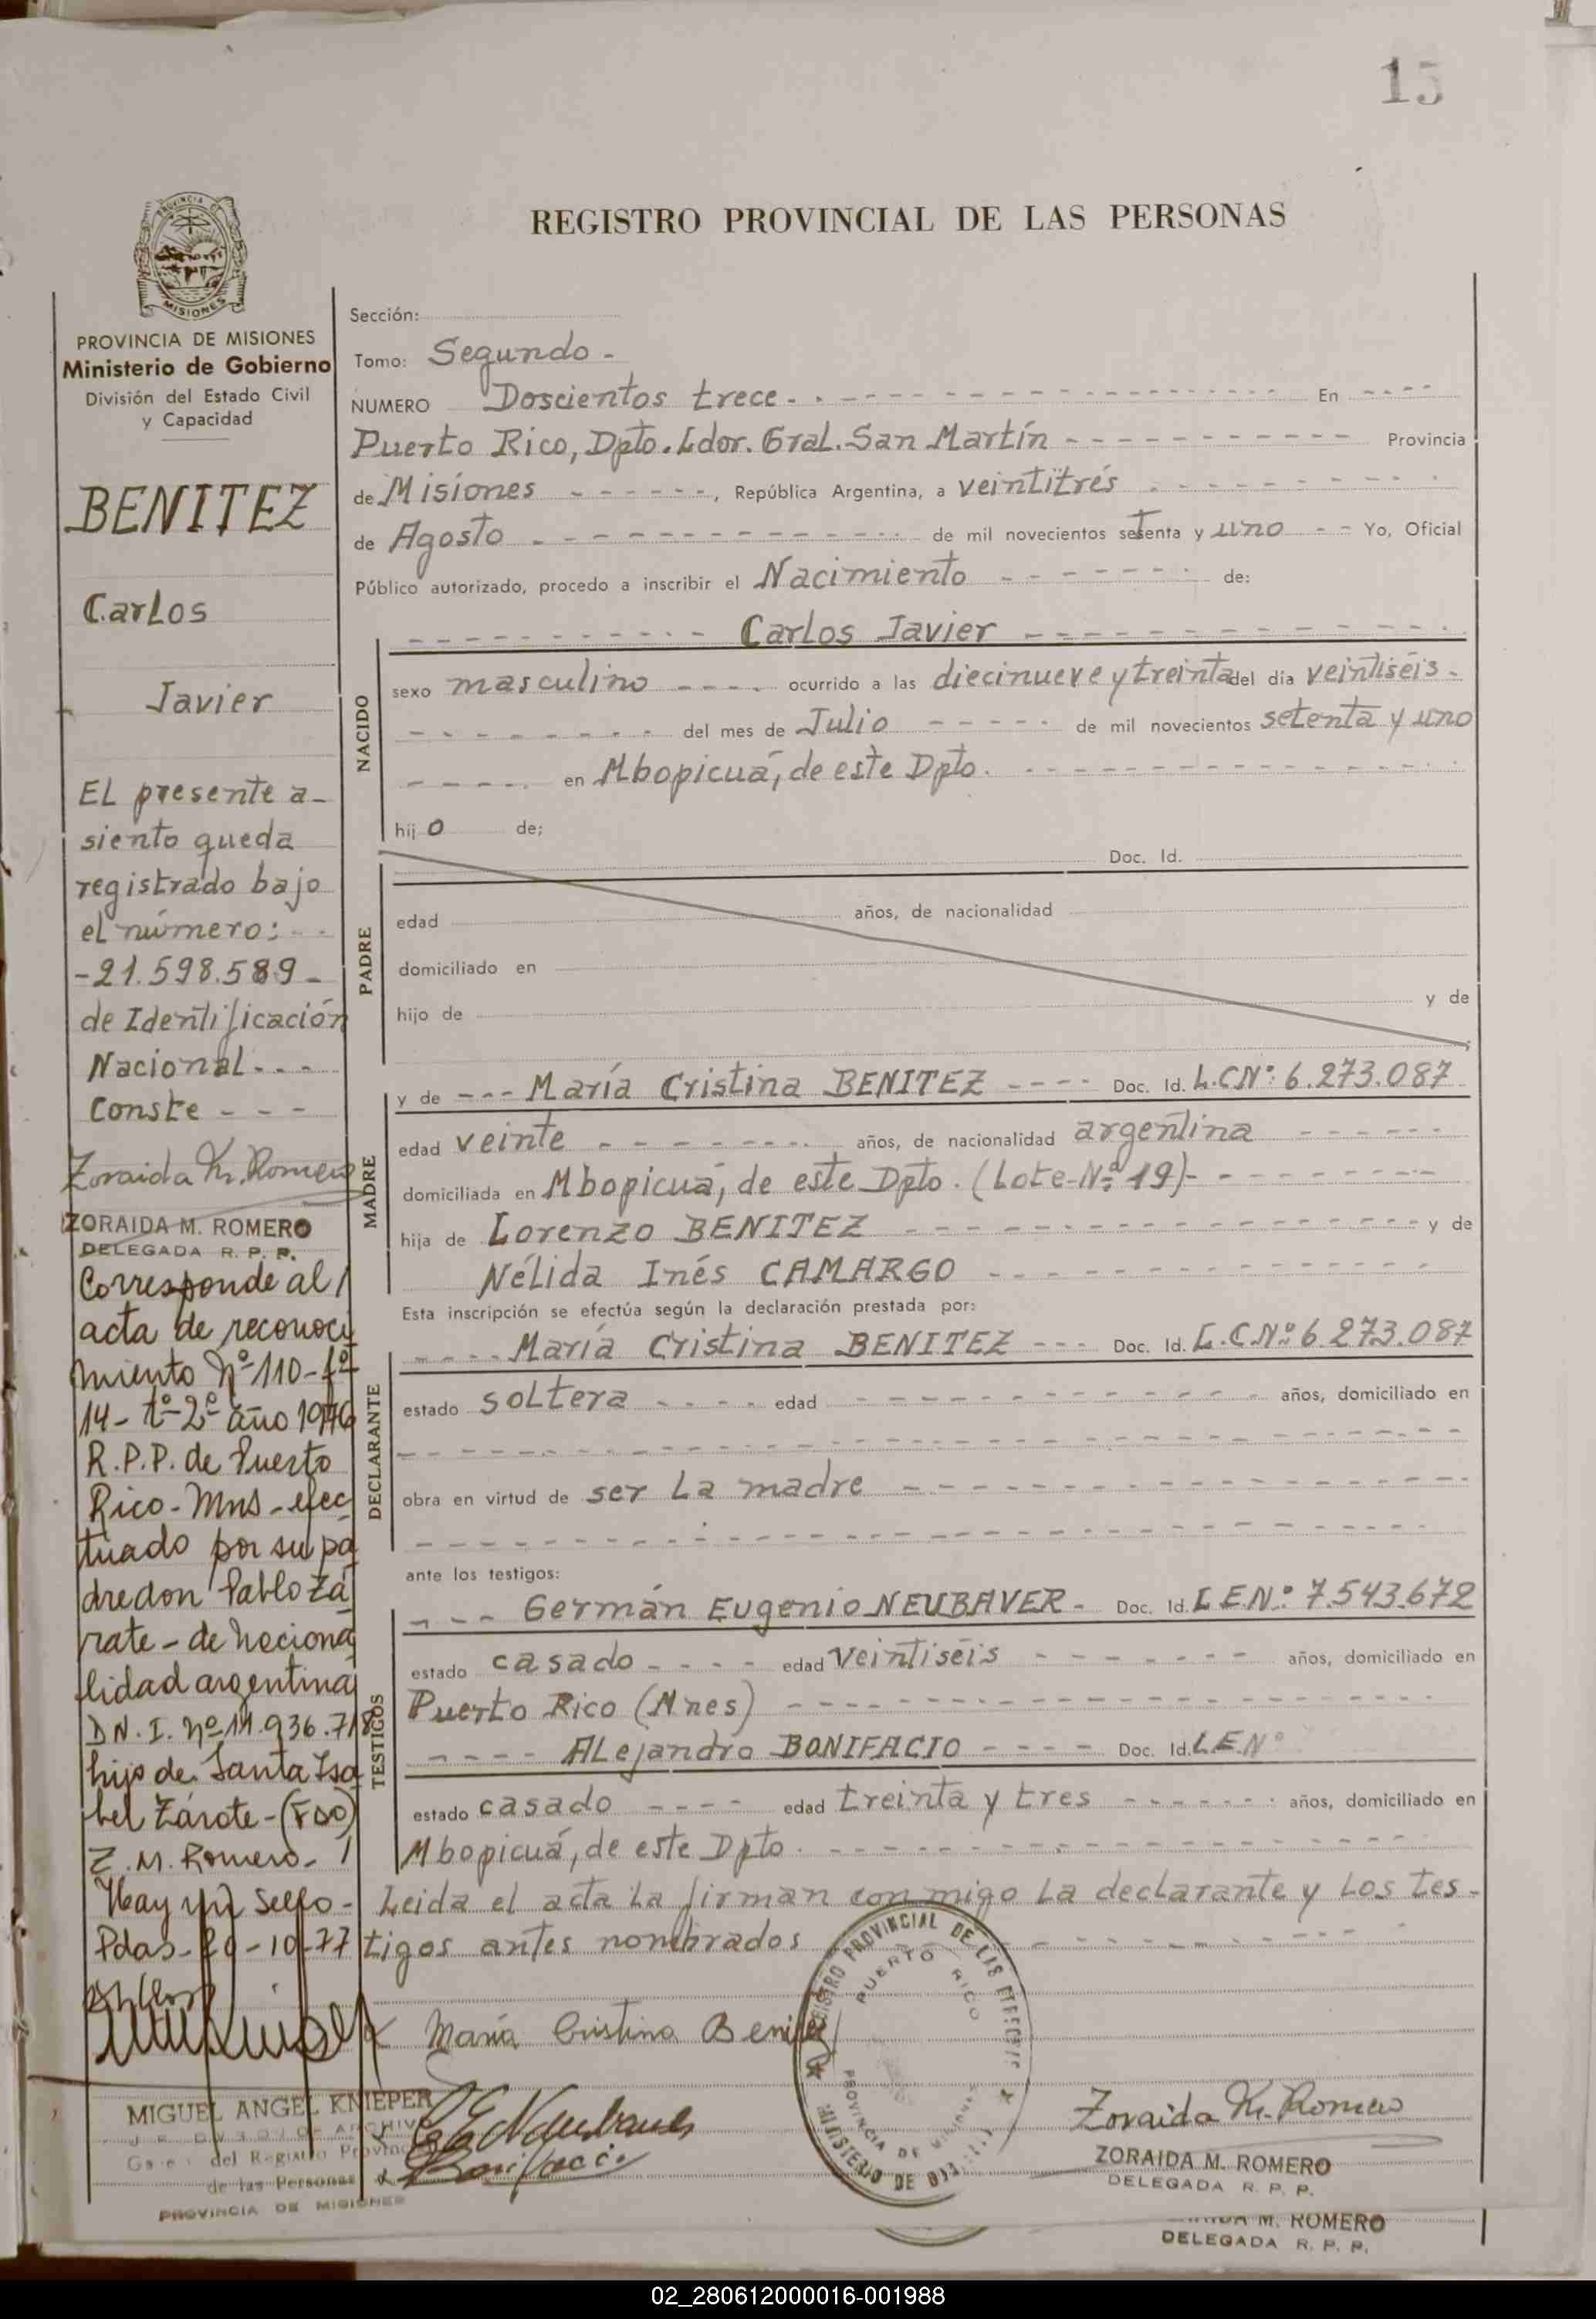 15
REGISTRO PROVINCIAL DE LAS PERSONAS
MISIONES
PROVINCIA DE MISIONES
Ministerio de Gobierno
División del Estado Civil
y Capacidad
BENITEZ
Carlos
Javier
EL presente a-
siento queda
registrado bajo
el número: - -
-21.598.589-
de Identificación
Nacional - - -
Conste - - -
Zoraida M. Romero
ZORAIDA M. ROMERO
DELEGADA R. P. P.
Corresponde al /
acta de reconoci
miento Nº 110-fº
14- tº-2º año 1976
R.P.P. de Puerto
Rico-Mns-efec
tuado por su pa
dre don Pablo Zá
rate-de naciona
lidad argentina
D.N.I. nº 11.936.718
hijo de Santa Isa
bel Zárate-(FDO)
Z. M. Romero-/
Hay un sello-
Pdas-20-10-77
MIGUEL ANGEL KNIEPER
del Registro Provinc
de las Personas
PROVINCIA DE MISIONES
Sección:
Tomo: Segundo -
NUMERO Doscientos trece - - En - - - -
Puerto Rico, Dpto. Ldor. Gral. San Martín - - - Provincia
de Misiones - - - , República Argentina, a veintitrés - - -
de Agosto - - - de mil novecientos setenta y uno - - Yo, Oficial
Público autorizado, procedo a inscribir el Nacimiento - - - de:
- - - Carlos Javier - - -
NACIDO
sexo masculino - - - ocurrido a las diecinueve y treinta del día veintiséis -
- - - del mes de Julio - - - de mil novecientos setenta y uno
- - - en Mbopicuá, de este Dpto. - - -
hijo de;
PADRE
Doc. Id.
edad años, de nacionalidad
domiciliado en
hijo de y de
MADRE
y de - - - María Cristina BENITEZ - - - - Doc. Id. L.C.Nº: 6.273.087
edad veinte - - - años, de nacionalidad argentina - - -
domiciliada en Mbopicuá, de este Dpto. (Lote-Nº 19)- - - -
hija de Lorenzo BENITEZ - - - y de
Nélida Inés CAMARGO - - -
Esta inscripción se efectúa según la declaración prestada por:
DECLARANTE
- - - - María Cristina BENITEZ - - - Doc. Id. L.C.Nº: 6.273.087
estado soltera - - - - edad - - - años, domiciliado en
obra en virtud de ser La madre - - -
ante los testigos:
TESTIGOS
- - - Germán Eugenio NEUBAVER - Doc. Id. L.E.Nº: 7.543.672
estado casado - - - - edad veintiséis - - - años, domiciliado en
Puerto Rico (Mnes) - - -
- - - - ALejandro BONIFACIO - - - - Doc. Id. L.E.Nº
estado casado - - - - edad treinta y tres - - - años, domiciliado en
Mbopicuá, de este Dpto. - - -
Leida el acta La firman conmigo La declarante y Los tes-
tigos antes nombrados - - -
María Cristina Benitez
REGISTRO PROVINCIAL DE LAS
PUERTO RICO
PROVINCIA DE MISIONES
MINISTERIO DE
Zoraida M. Romero
ZORAIDA M. ROMERO
DELEGADA R. P. P.
M. ROMERO
DELEGADA R. P. P.
02_280612000016-001988